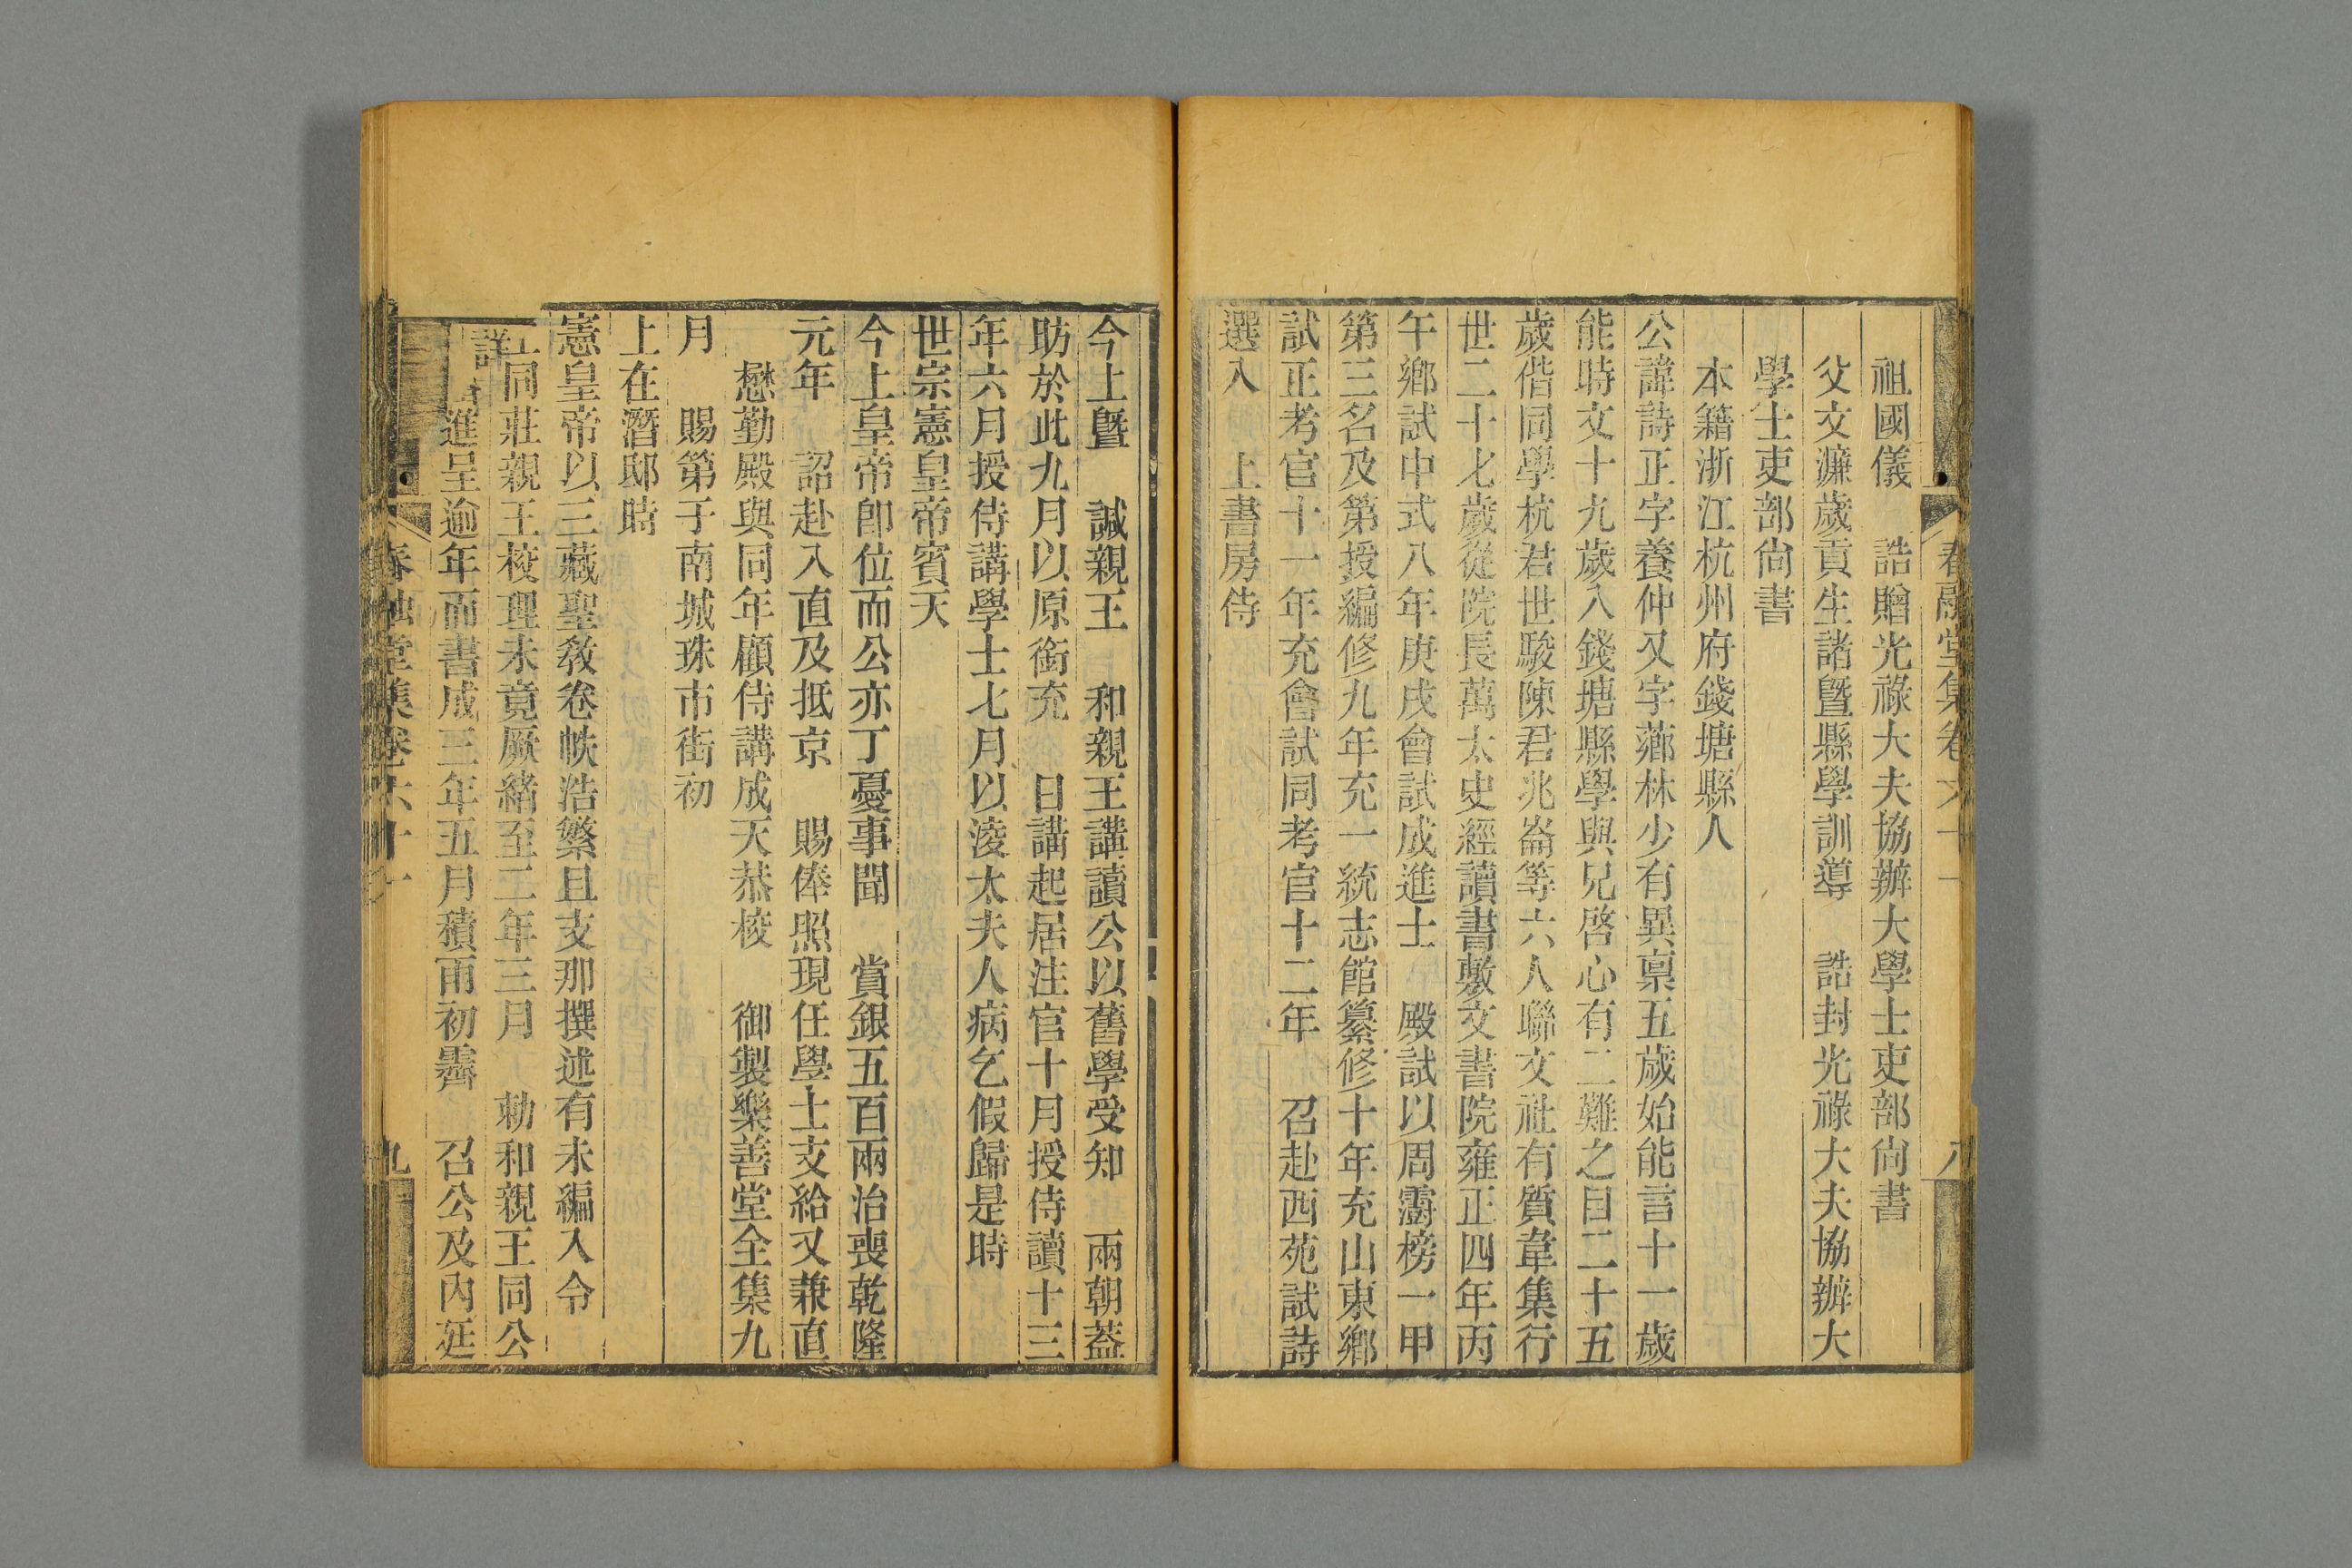 春融堂集卷六十一
八
祖國儀　誥贈光祿大夫協辦大學士吏部尙書
父文濂歲貢生諸暨縣學訓導　誥封光祿大夫協辦大
學士吏部尙書
本籍浙江杭州府錢塘縣人
公諱詩正字養仲又字薌林少有異禀五歲始能言十一歲
能時文十九歲入錢塘縣學與兄啓心有二難之目二十五
歲偕同學杭君世駿陳君兆崙等六人聯文社有質韋集行
世二十七歲從院長萬太史經讀書敷文書院雍正四年丙
午鄉試中式八年庚戌會試成進士　殿試以周霨榜一甲
第三名及第授編修九年充一統志館纂修十年充山東鄉
試正考官十一年充會試同考官十二年　召赴西苑試詩
選入　上書房侍
今上曁　諴親王　和親王講讀公以舊學受知　兩朝葢
昉於此九月以原銜充　日講起居注官十月授侍讀十三
年六月授侍講學士七月以淩太夫人病乞假歸是時
世宗憲皇帝賓天
今上皇帝卽位而公亦丁憂事聞　賞銀五百兩治喪乾隆
元年　詔赴入直及抵京　賜俸照現任學士支給又兼直
懋勤殿與同年顧侍講成天恭校　御製樂善堂全集九
月　賜第于南城珠市街初
上在潛邸時
憲皇帝以三藏聖敎卷帙浩繁且支那撰述有未編入令
同莊親王校理未竟厥緒至二年三月　勅和親王同公
詳　進呈逾年而書成三年五月積雨初霽　召公及內廷
春融堂集卷六十一
九